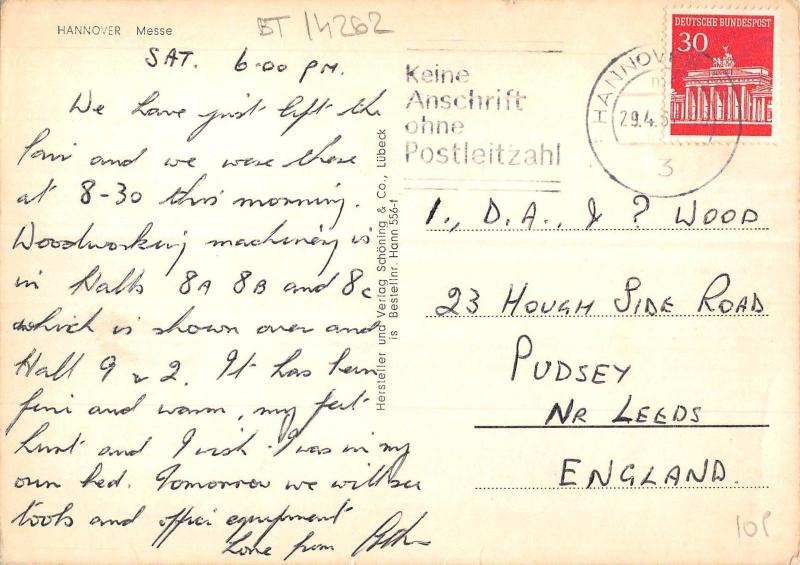 HANNOVER Messe
BT 14262
SAT. 6.00 PM.
We have just left the
fair and we were there
at 8-30 this morning.
Woodworking machinery is
in Halls 8A 8B and 8C
which is shown over and
Hall 9 & 2. It has been
fine and warm, my feet
hurt and I wish I was in my
own bed. Tomorrow we will see
tools and office equipment
Love from
Hersteller und Verlag Schöning & Co., Lübeck
is Bestellnr. Hann 556-f
Keine
Anschrift
ohne
Postleitzahl
HANNOVER
29.4.
3
DEUTSCHE BUNDESPOST
30
1., D.A., & ? WOOD
23 HOUGH SIDE ROAD
PUDSEY
NR LEEDS
ENGLAND.
10P